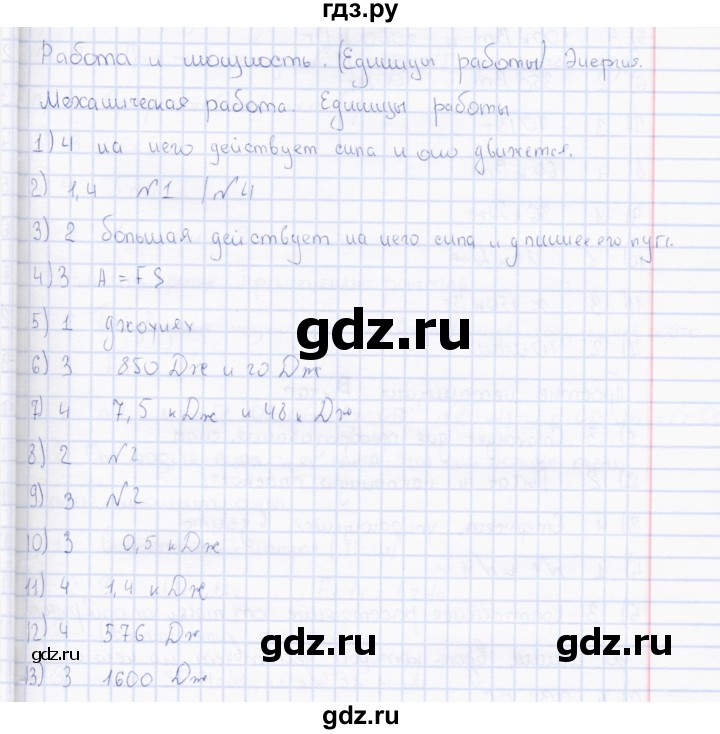 гдз.ру
Работа и мощность. (Единицы работы) Энергия.
Механическая работа. Единицы работы
1) 4 на него действует сила и оно движется.
2) 1,4 №1 | №4
3) 2 большая действует на него сила и длиннее его путь.
4) 3 A = FS
5) 1 джоулях
gdz.ru
6) 3 850 Дж и 20 Дж
7) 4 7,5 кДж и 48 кДж
8) 2 №2
9) 3 №2
10) 3 0,5 кДж
11) 4 1,4 кДж
12) 4 576 Дж
gdz.ru
gdz.ru
gdz.ru
13) 3 1600 Дж
gdz.ru